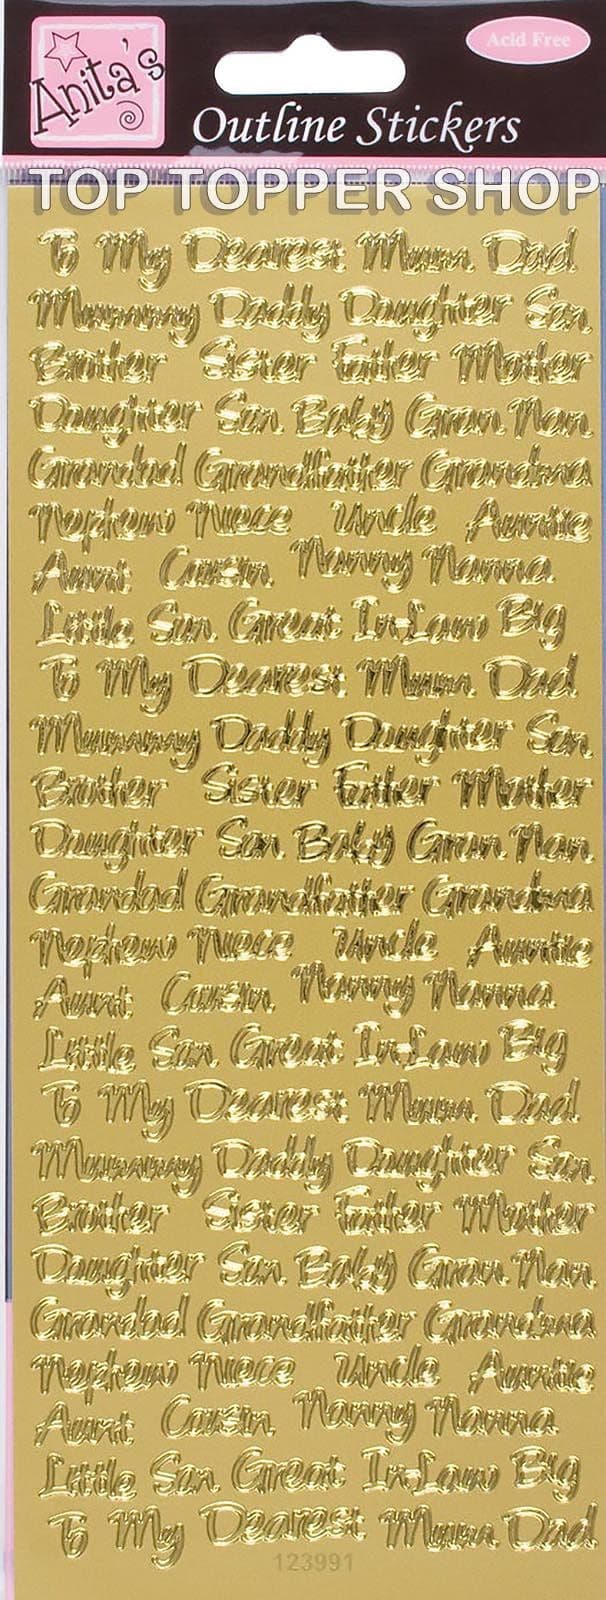 Anita's
Acid Free
Outline Stickers
TOP TOPPER SHOP
To My Dearest Mum Dad
Mummy Daddy Daughter Son
Brother Sister Father Mother
Daughter Son Baby Gran Nan
Grandad Grandfather Grandma
Nephew Niece Uncle Auntie
Aunt Cousin Nanny Nanna
Little Son Great In-Law Big
To My Dearest Mum Dad
Mummy Daddy Daughter Son
Brother Sister Father Mother
Daughter Son Baby Gran Nan
Grandad Grandfather Grandma
Nephew Niece Uncle Auntie
Aunt Cousin Nanny Nanna
Little Son Great In-Law Big
To My Dearest Mum Dad
Mummy Daddy Daughter Son
Brother Sister Father Mother
Daughter Son Baby Gran Nan
Grandad Grandfather Grandma
Nephew Niece Uncle Auntie
Aunt Cousin Nanny Nanna
Little Son Great In-Law Big
To My Dearest Mum Dad
123991